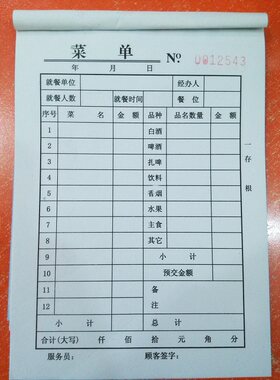 菜 单 No 0012543
年 月 日
就餐单位 经办人
就餐人数 就餐时间 餐位
序号 菜 名 金 额 品种 品名数量 金 额
1 白酒
2 啤酒
3 扎啤
4 饮料
5 香烟
6 水果
7 主食
8 其它
9 小 计
10 预交金额
11 备
12 注
小 计 总 计
合计(大写) 仟 佰 拾 元 角 分
服务员: 顾客签字:
一存根